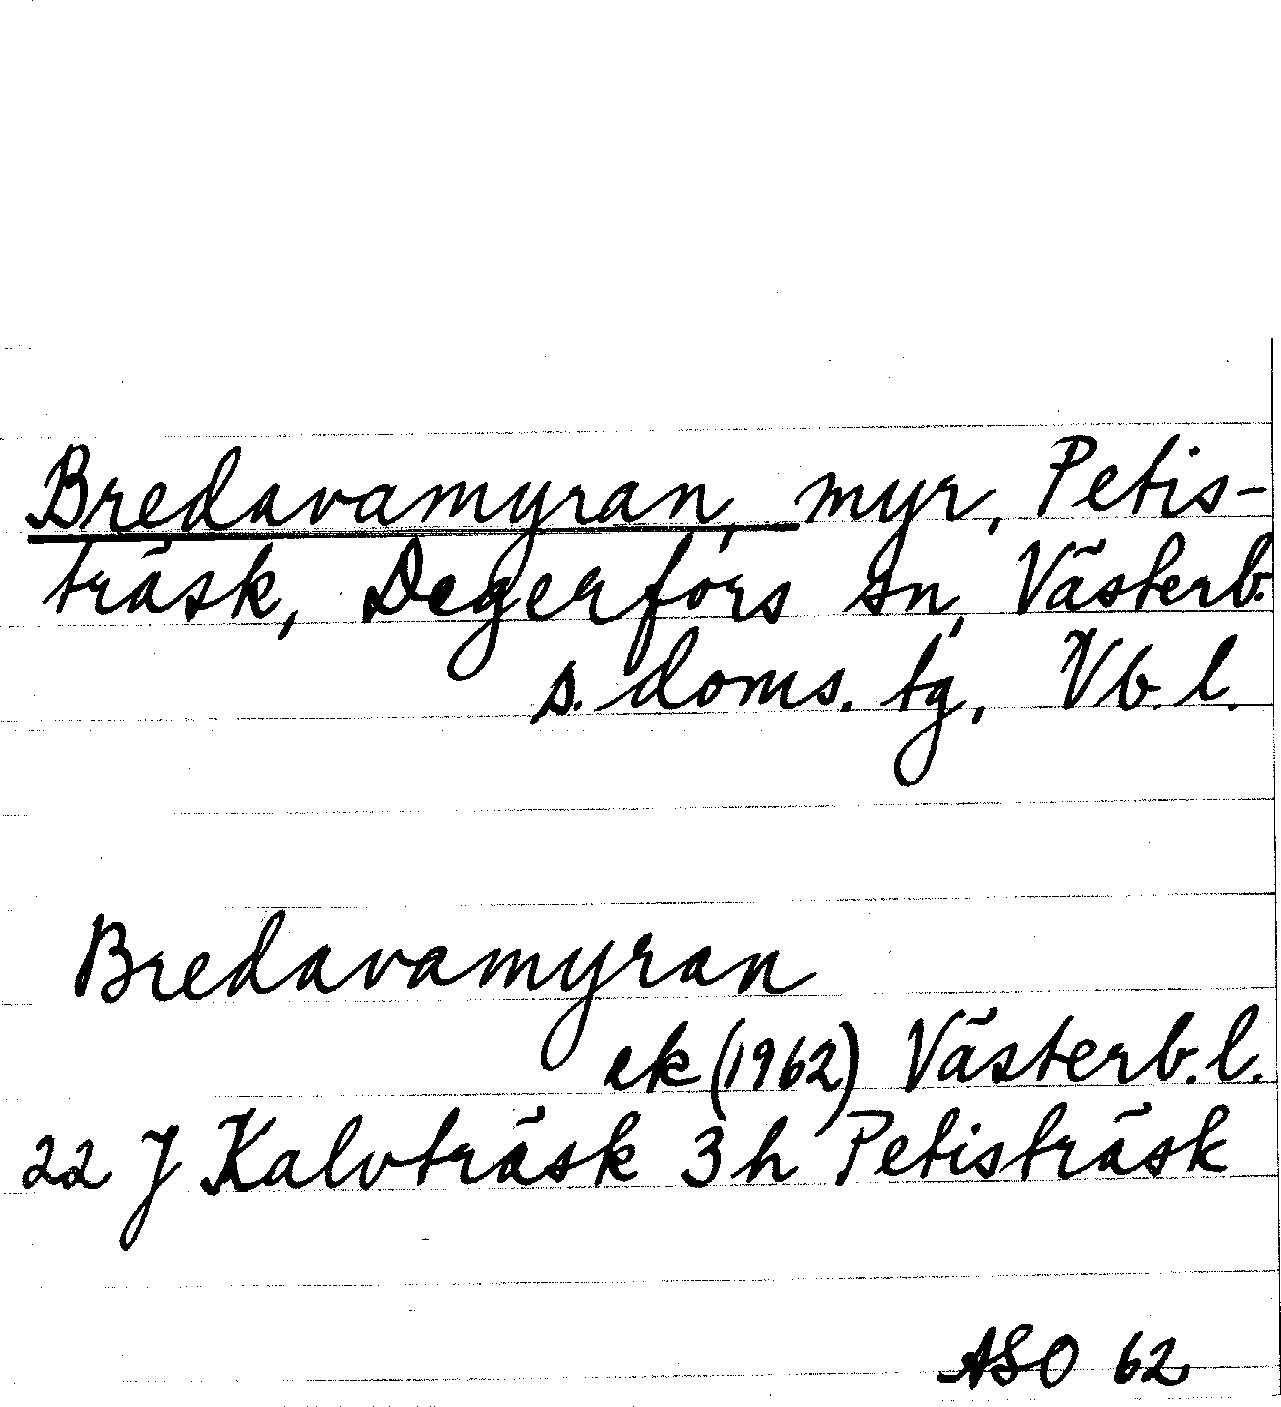 Bredavamyran, myr, Petis-
träsk, Degerfors sn, Västerb.
s. doms. tg, Vb. l.
Bredavamyran
ek (1962) Västerb. l.
22 J Kalvträsk 3 h Petisträsk
ASO 62